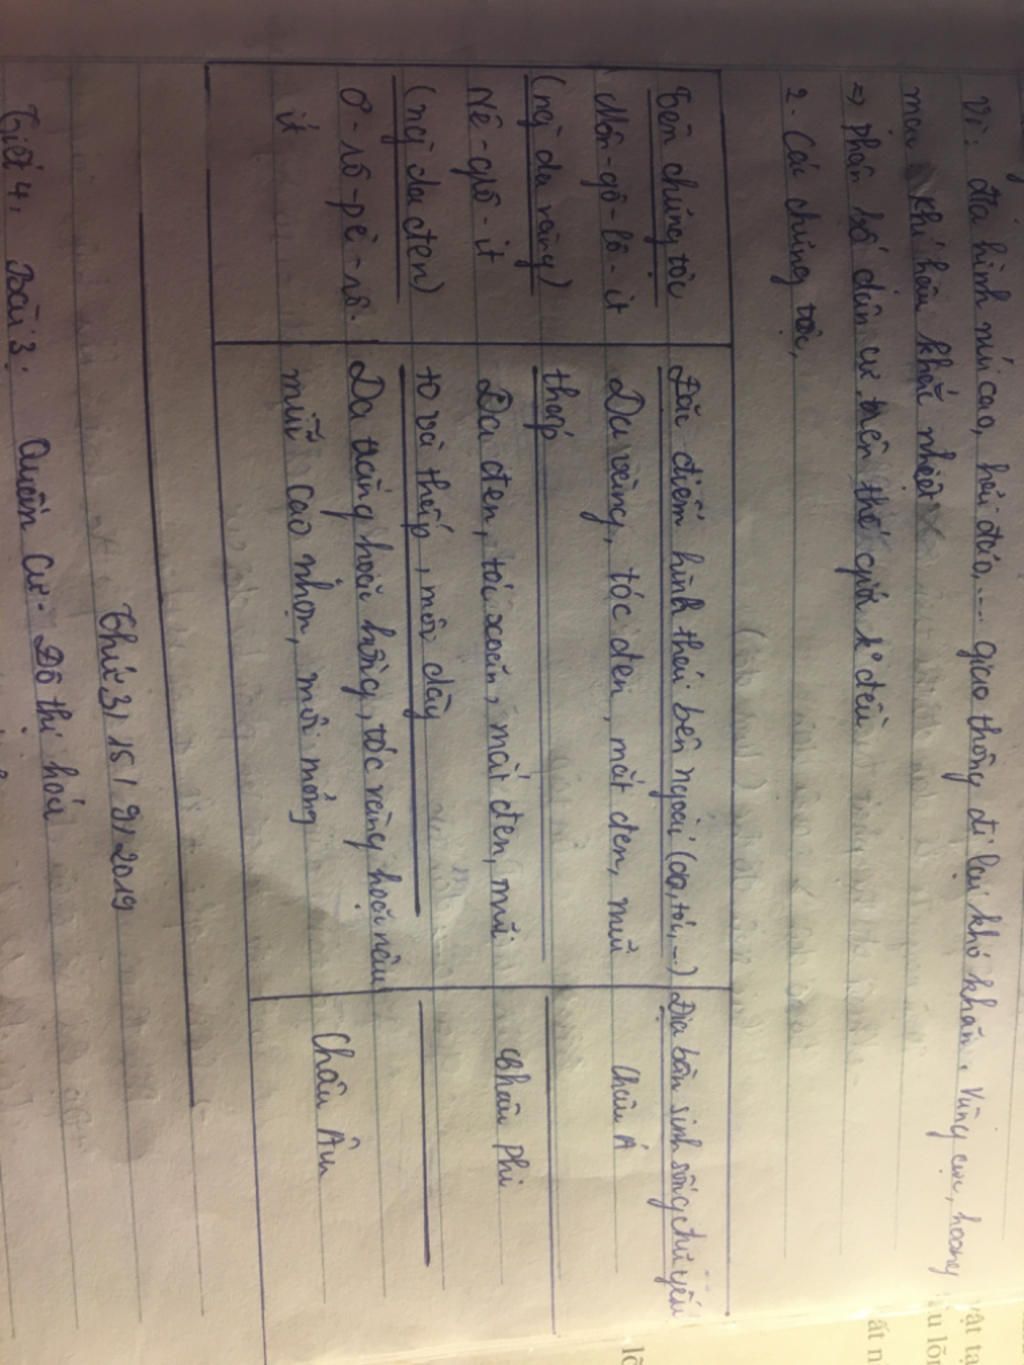 Vì: địa hình núi cao, hải đảo,... giao thông đi lại khó khăn. Vùng cực, hoang
mạc khí hậu khắc nhiệt
=> phân bố dân cư trên thế giới k° đều
2. Các chủng tộc,
Tên chủng tộc
Đặc điểm hình thái bên ngoài (da, tóc,...)
Địa bàn sinh sống chủ yếu
Môn-gô-lô-it
(ng` da vàng)
Da vàng, tóc đen, mắt đen, mũi
thấp
Châu Á
Nê-grô-it
(ng` da đen)
Da đen, tóc xoăn, mắt đen, mũi
to và thấp, môi dày
Châu Phi
Ơ-rô-pê-ô-
it
Da trắng hoặc hồng, tóc vàng hoặc nâu
mũi cao nhọn, môi mỏng
Châu Âu
Thứ 3/ 15/ 9/ 2019
Tiết 4, Bài 3: Quần cư. Đô thị hoá
ật ta
u lõ
ất n
lõ